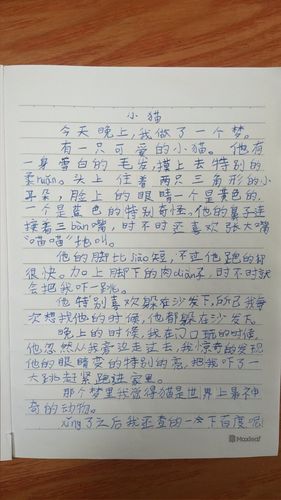 小猫
今天晚上，我做了一个梦。
有一只可爱的小猫。他有
一身雪白的毛发，摸上去特别的
柔ruǎn。头上住着两只三角形的小
耳朵，脸上的眼睛一个是黄色的，
一个是蓝色的特别奇怪。他的鼻子连
接着三bàn嘴，时不时还喜欢张大嘴
“喵喵”地叫。
他的脚比jiào短，不过他跑的却
很快。加上脚下的肉diàn子，时不时就
会把我吓一跳。
他特别喜欢躲在沙发下，所以我每
次想找他的时候，他都躲在沙发下。
晚上的时候，我在门口玩的时候，
他忽然从我旁边走过去，我惊奇的发现
他的眼睛变的特别的亮，把我吓了一
大跳赶紧跑进家里。
那个梦里我觉得猫是世界上最神
奇的动物。
xǐng了之后我还查的一次下百度呢
Maxleaf